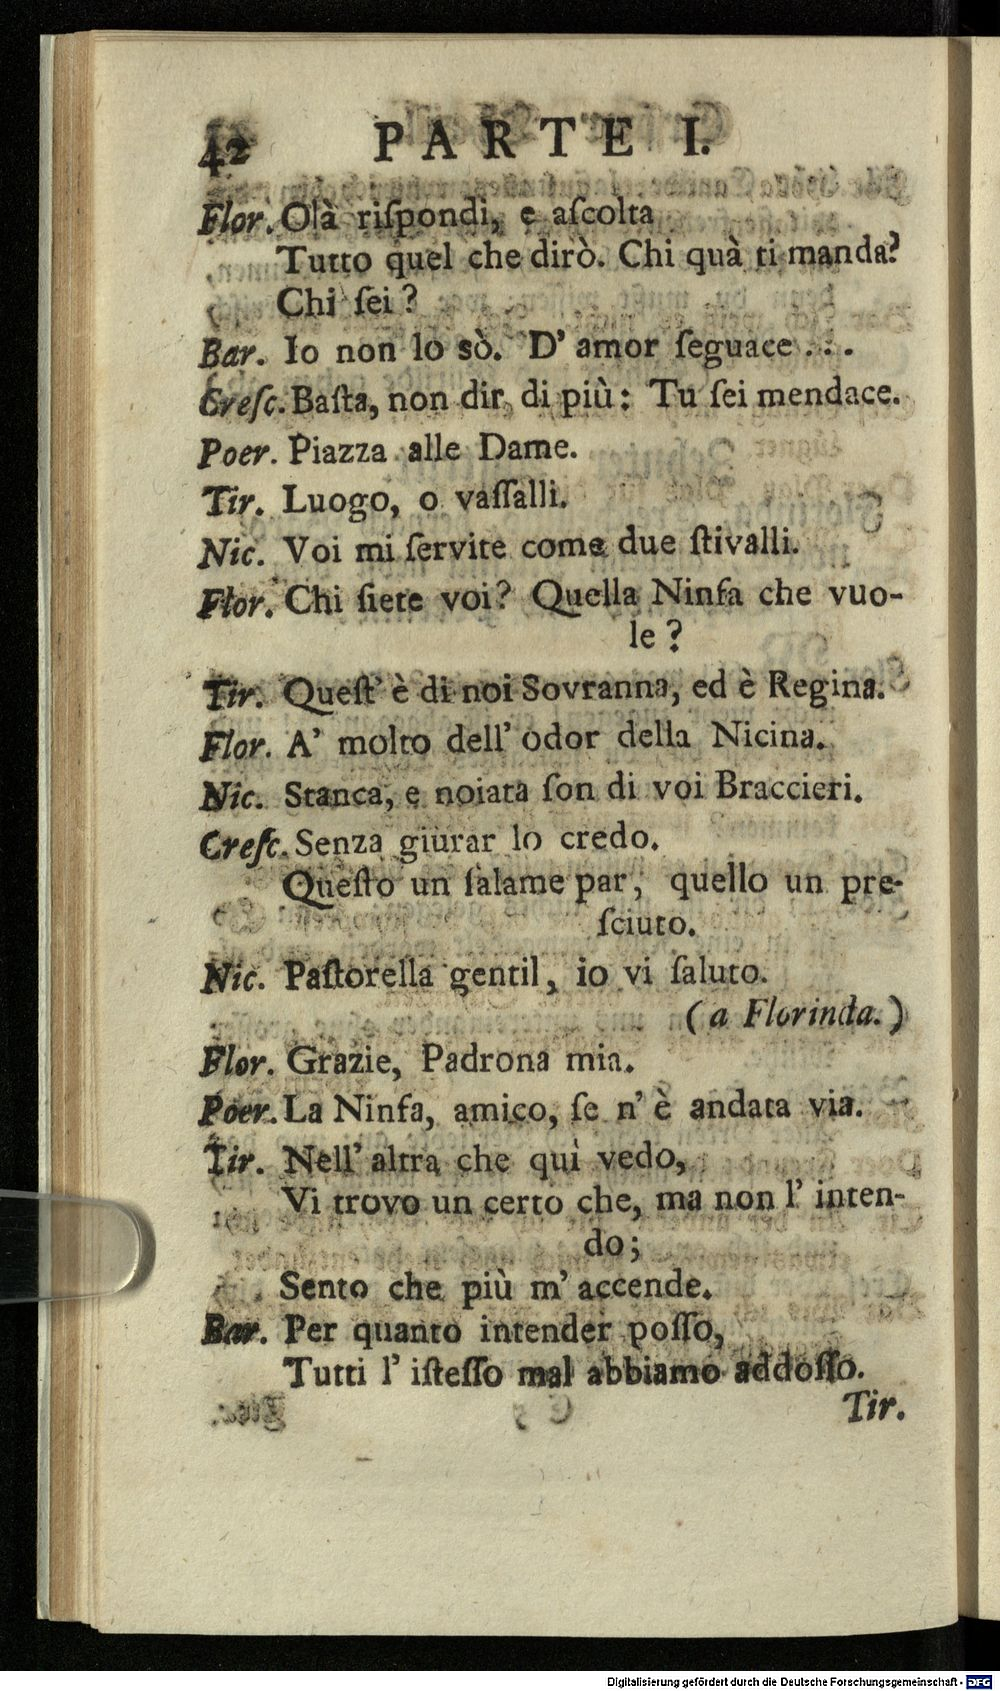 42 PARTE I.
Flor. Olà riſpondi, e aſcolta
Tutto quel che dirò. Chi quà ti manda?
Chi ſei?
Bar. Io non lo sò. D' amor ſeguace . . .
Creſc. Baſta, non dir di più: Tu ſei mendace.
Poer. Piazza alle Dame.
Tir. Luogo, o vaſſalli.
Nic. Voi mi ſervite come due ſtivalli.
Flor. Chi ſiete voi? Quella Ninfa che vuo-
le?
Tir. Queſt' è di noi Sovranna, ed è Regina.
Flor. A' molto dell' odor della Nicina.
Nic. Stanca, e noiata ſon di voi Braccieri.
Creſc. Senza giurar lo credo.
Queſto un ſalame par, quello un pre-
ſciuto.
Nic. Paſtorella gentil, io vi ſaluto.
(a Florinda.)
Flor. Grazie, Padrona mia.
Poer. La Ninfa, amico, ſe n' è andata via.
Tir. Nell' altra che quì vedo,
Vi trovo un certo che, ma non l' inten-
do;
Sento che più m' accende.
Bar. Per quanto intender poſſo,
Tutti l' iſteſſo mal abbiamo addoſſo.
Tir.
Digitalisierung gefördert durch die Deutsche Forschungsgemeinschaft - DFG